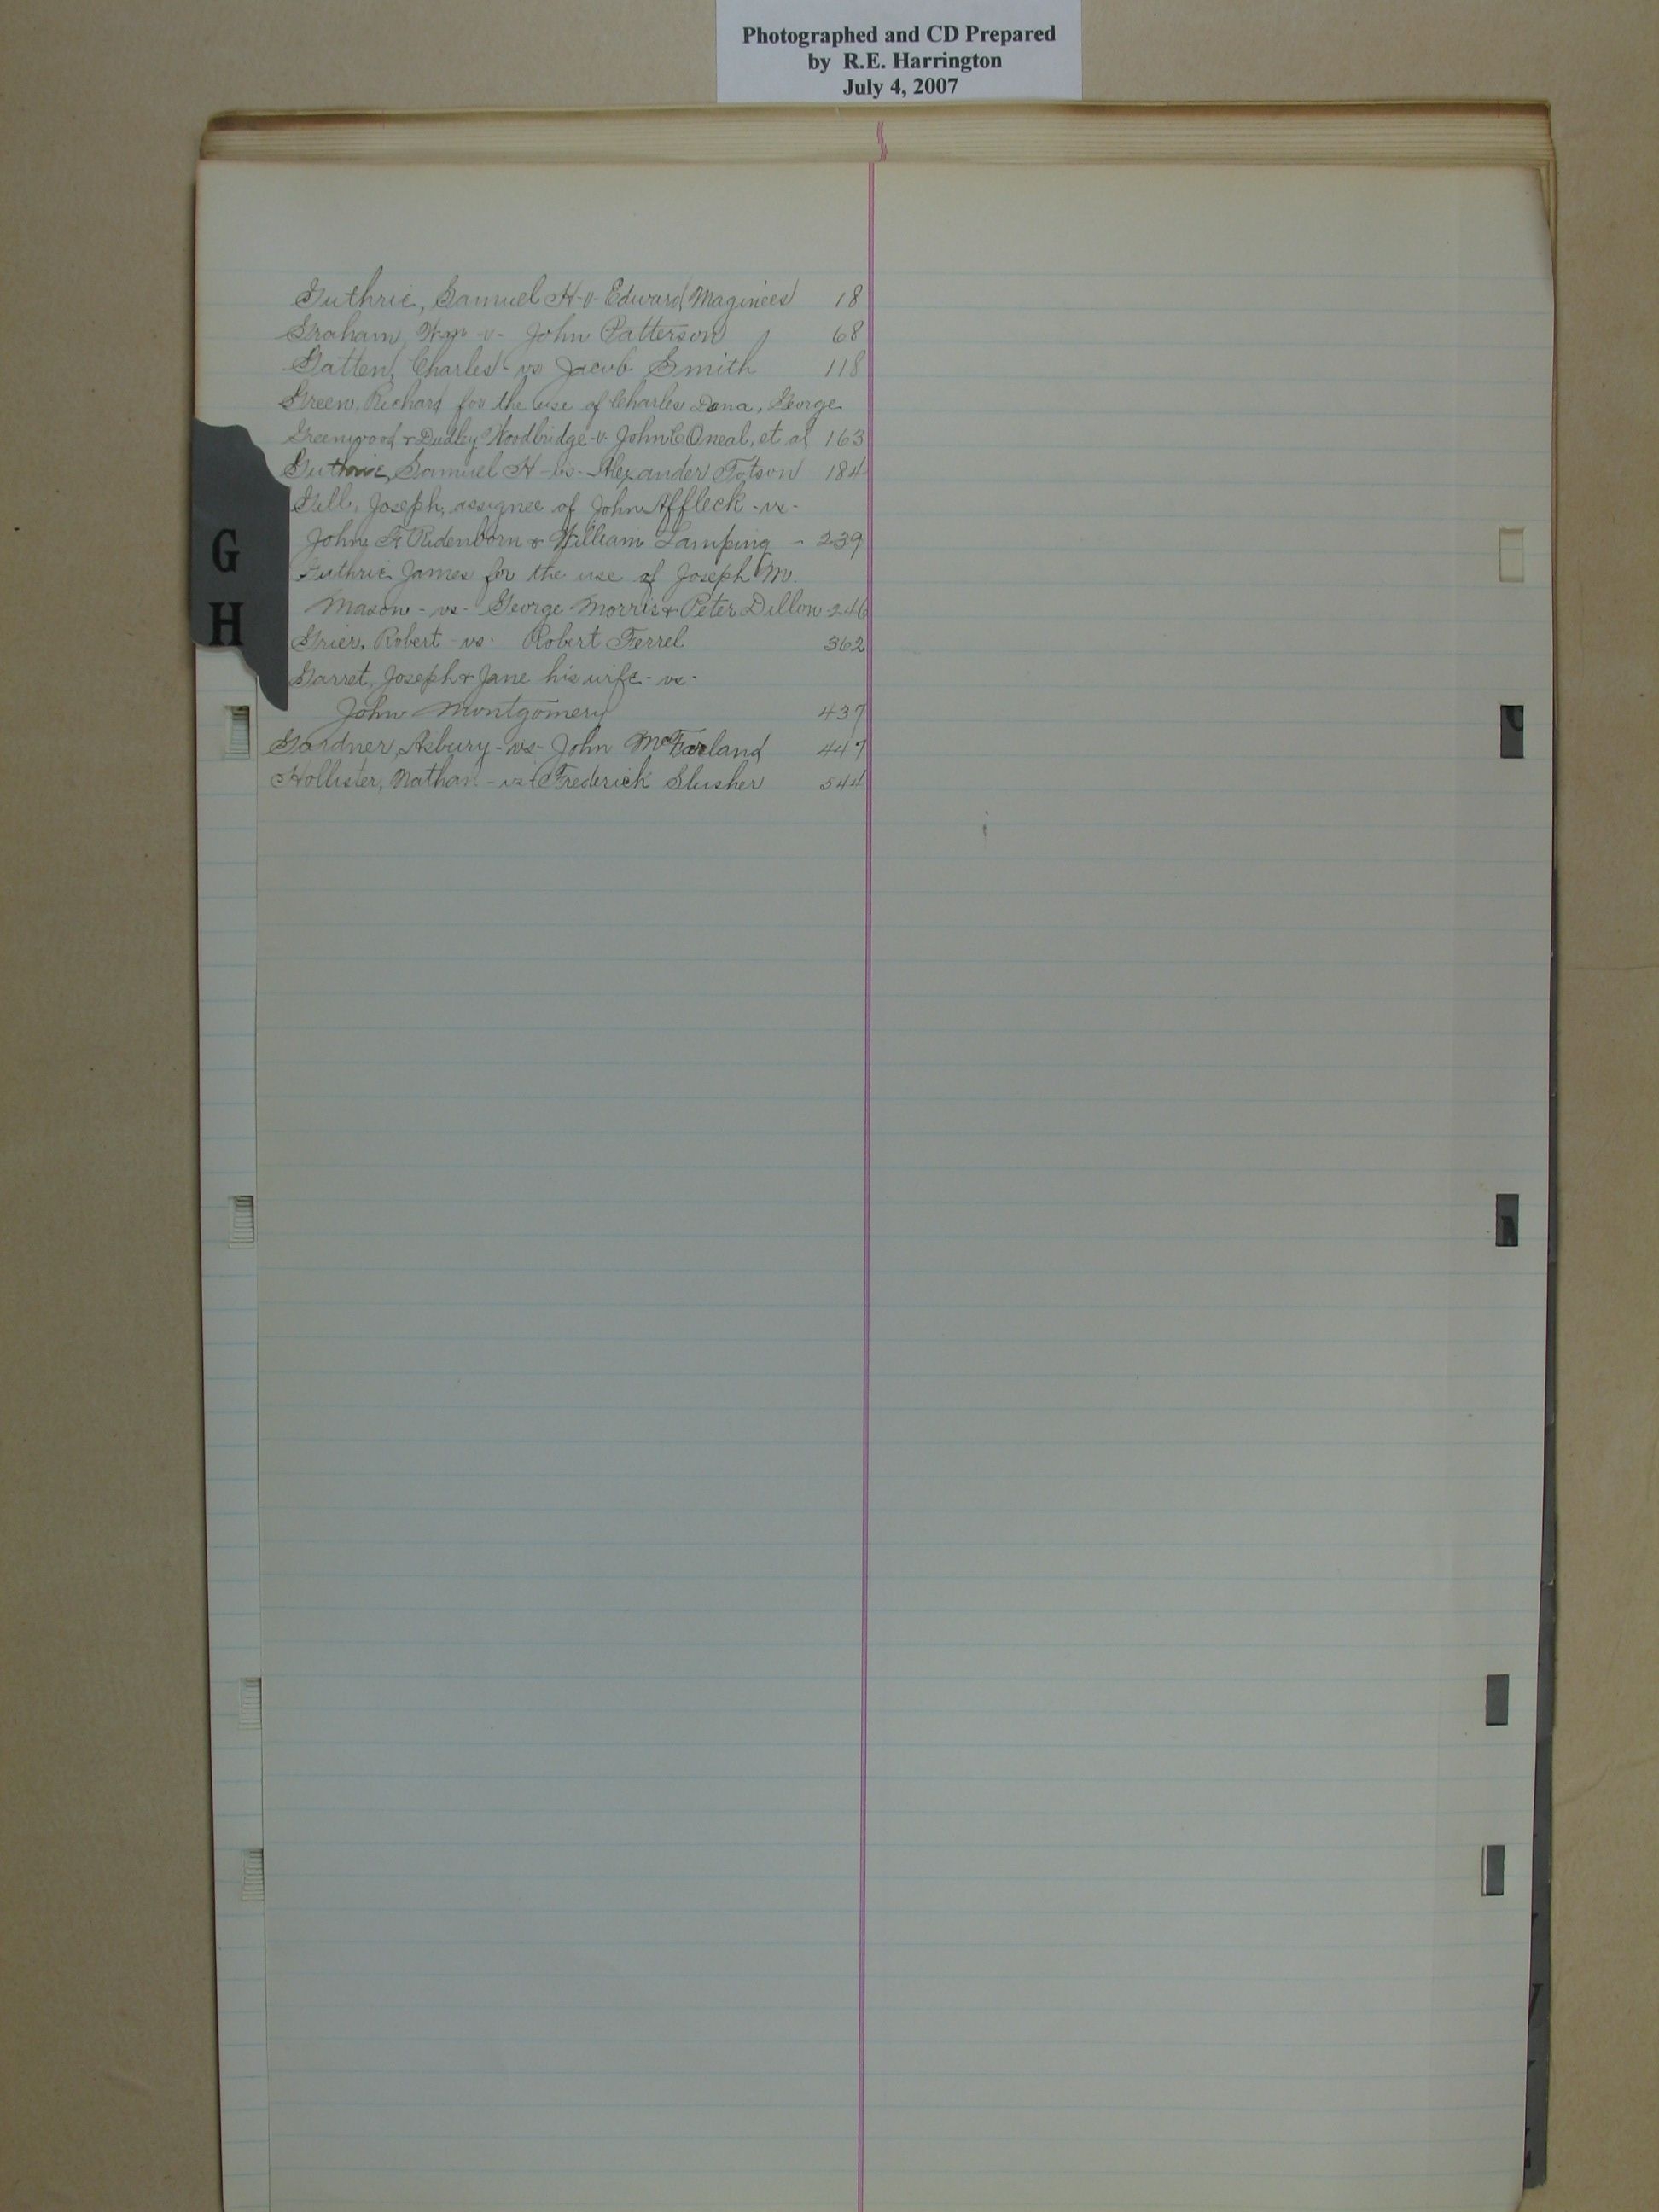 Photographed and CD Prepared
by R.E. Harrington
July 4, 2007
Guthrie, Samuel H -v- Edward Maginees 18
Graham, Wm -v- John Patterson 68
Gatten, Charles vs Jacob Smith 118
Green, Richard for the use of Charles Dana, George
Greenwood & Dudley Woodbridge -v- John C Oneal, et al 163
Guthrie, Samuel H -vs- Alexander Totson 184
Gill, Joseph, assignee of John Affleck -vs-
John F Ridenborn & William Lamping - 239
Guthrie James for the use of Joseph M.
Mason -vs- George Morris & Peter Dillon 246
Grier, Robert -vs- Robert Ferrel 362
Garret, Joseph & Jane his wife -vs-
John Montgomery 437
Gardner, Asbury -vs- John McFarland 447
Hollister, Nathan -vs- Frederick Slusher 544
G
H